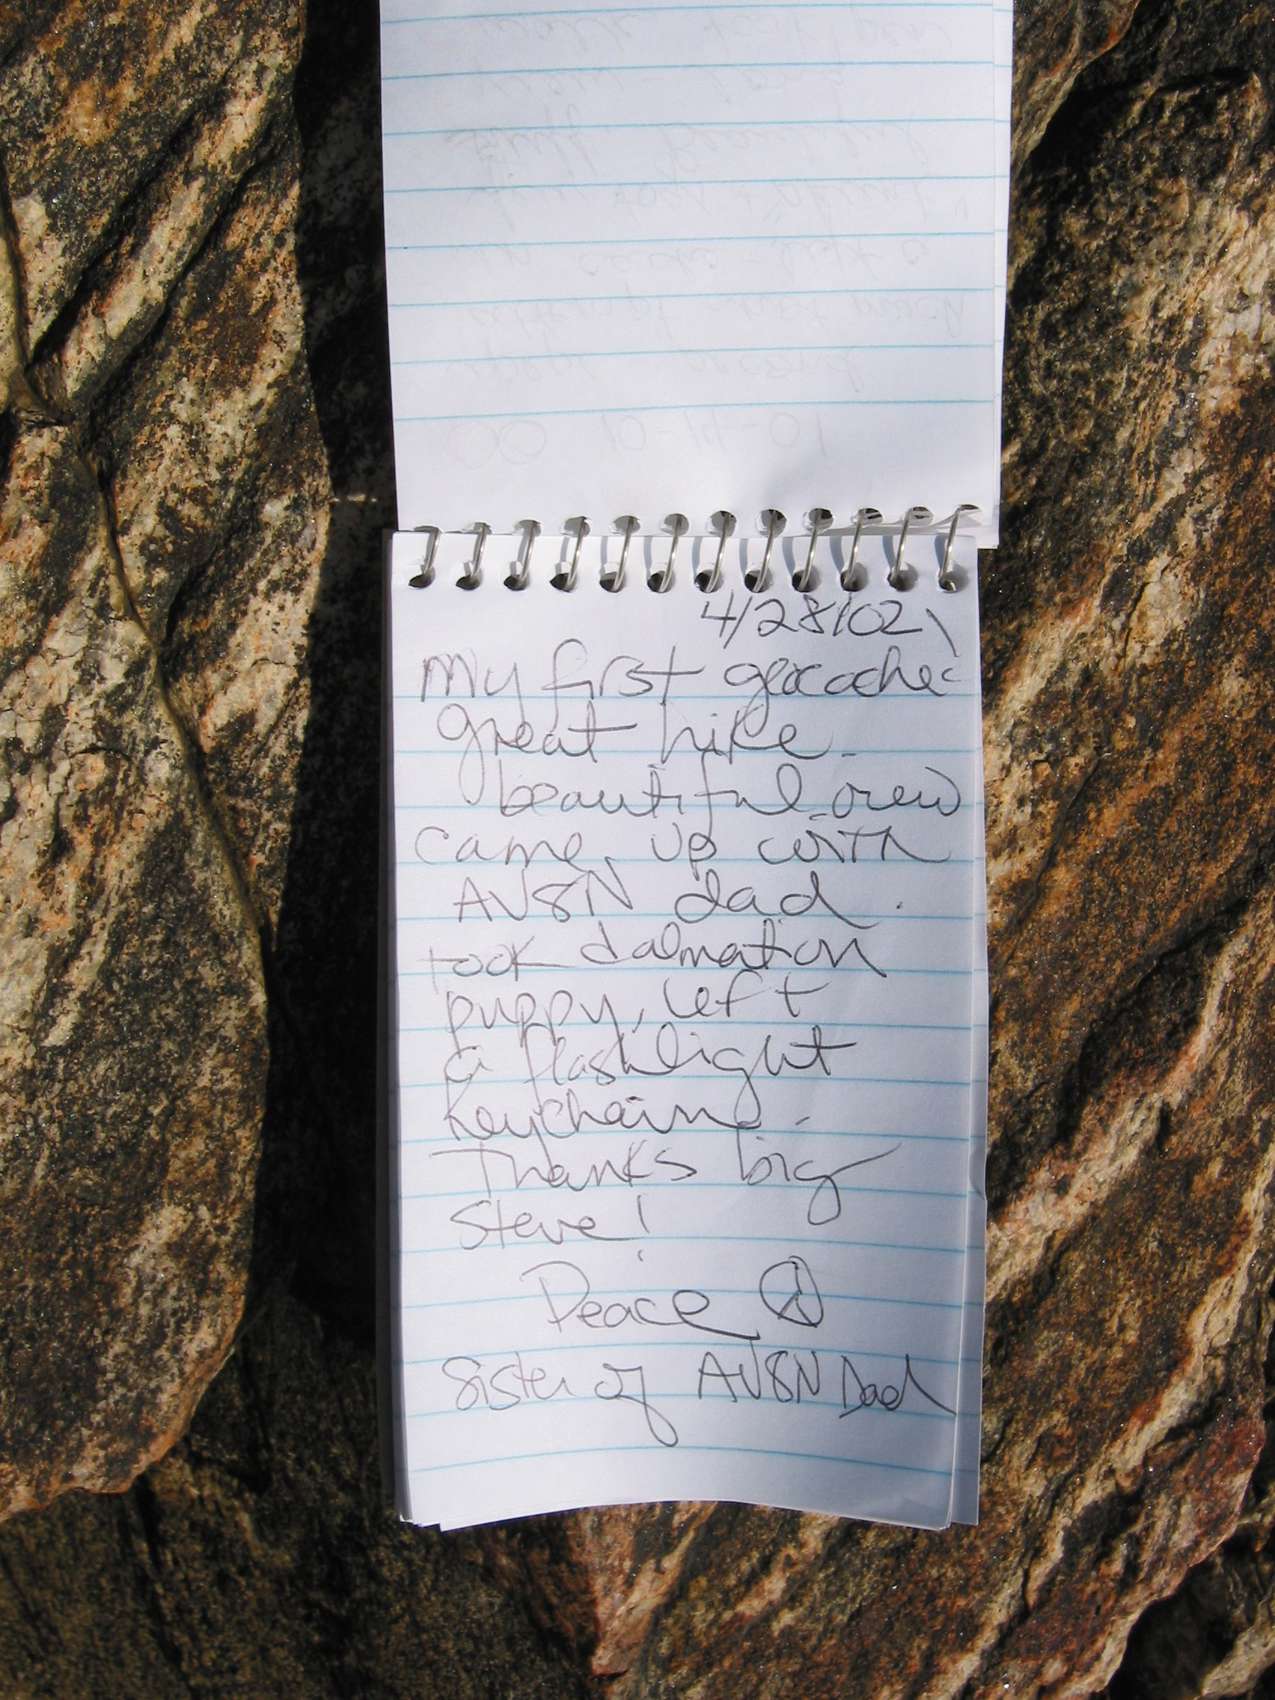 10-14-01
4/28/02
My first geocache
great hike -
beautiful view
came up with
AV8N dad.
took dalmation
puppy, left
a flashlight
keychain -
Thanks big
Steve!
Peace ☮
Sister of AV8N Dad